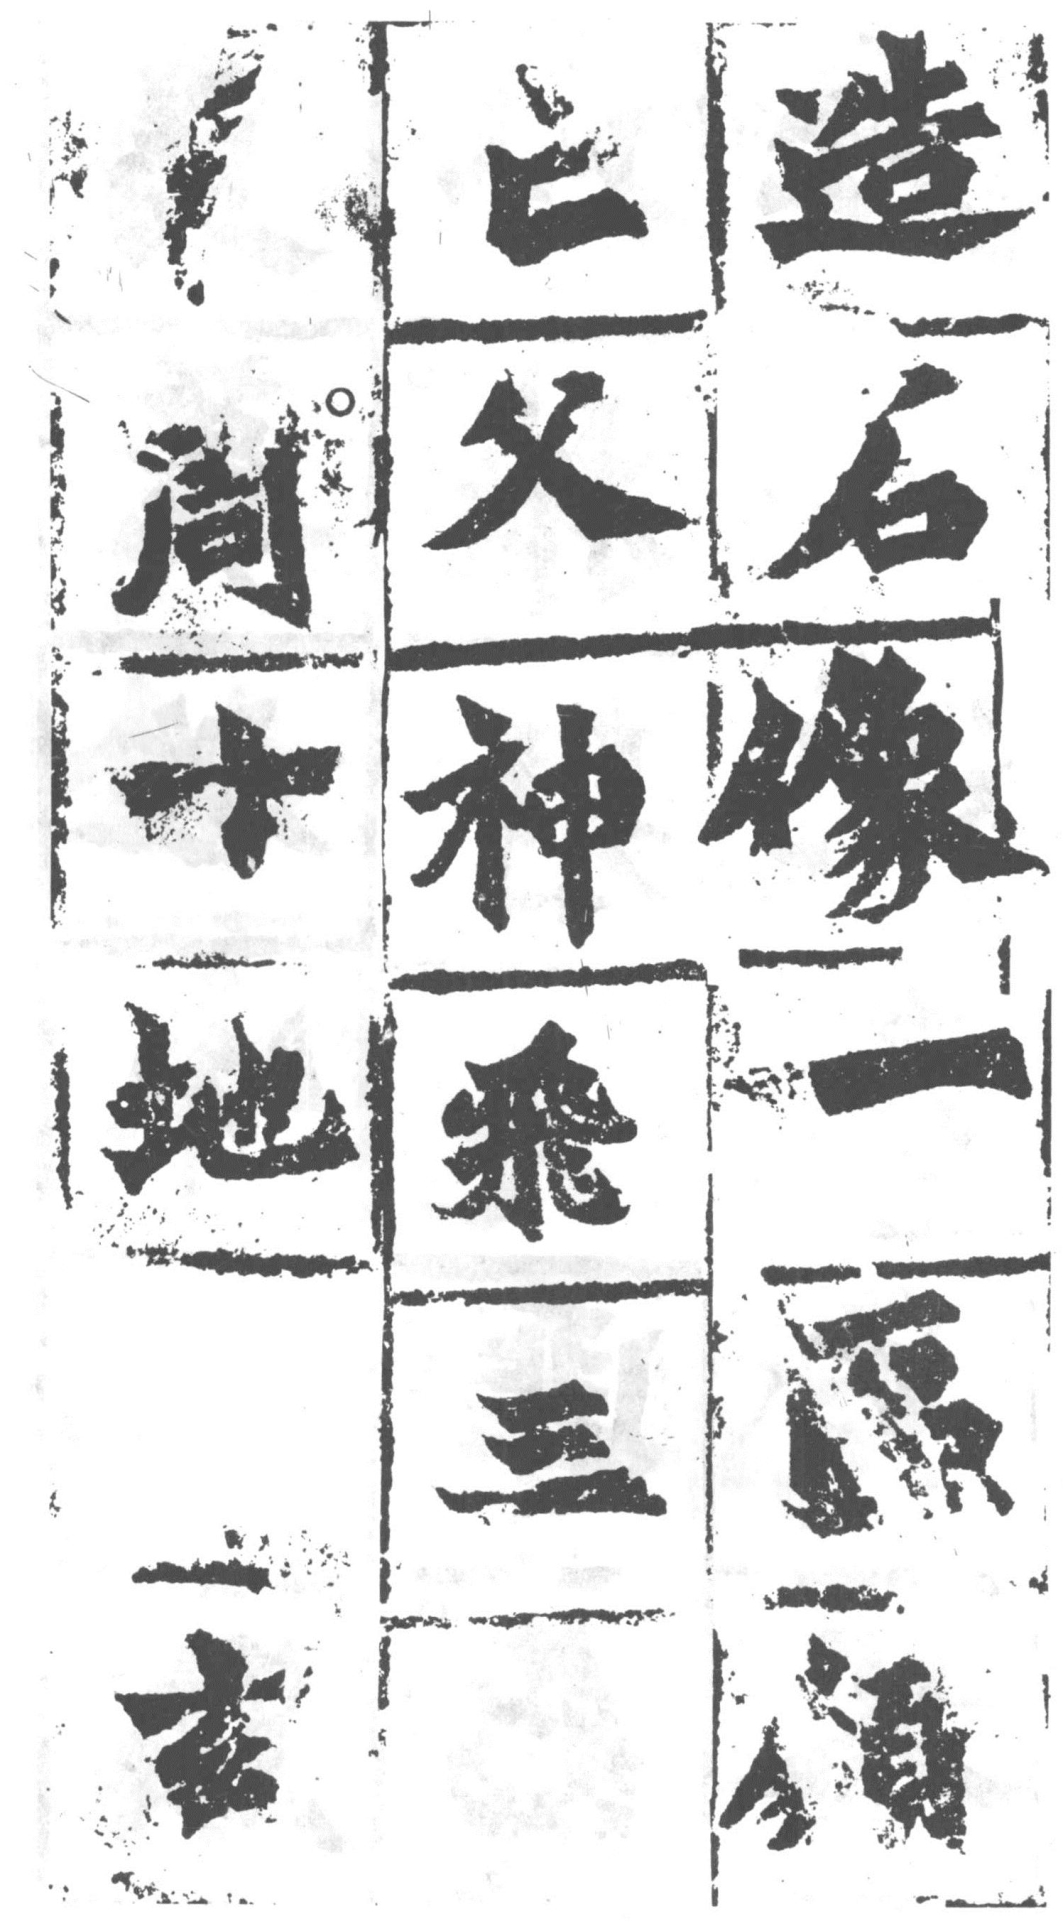 造石像一區
亡父神飛三
周十地玄